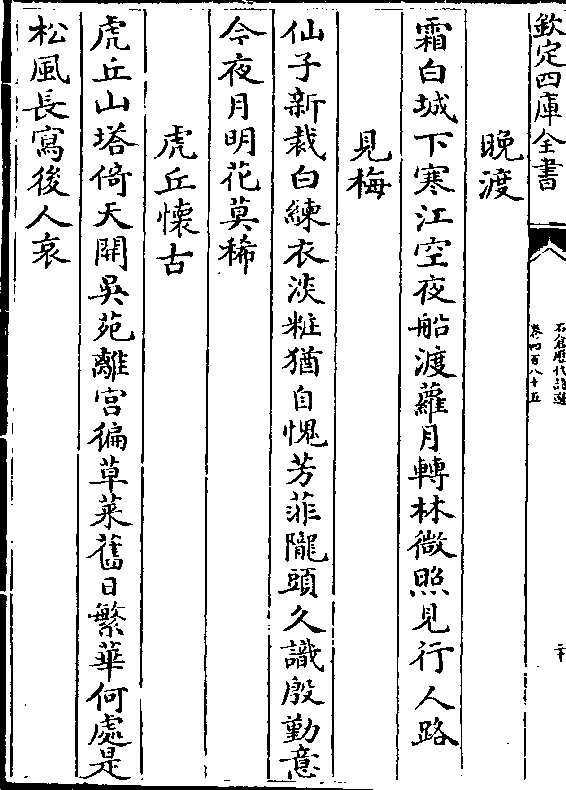 欽定四庫全書
石倉歷代詩選
卷四百八十五
二十
晚渡
霜白城下寒江空夜船渡蘿月轉林微照見行人路
見梅
仙子新裁白練衣淡粧猶自愧芳菲隴頭久識殷勤意
今夜月明花莫稀
虎丘懷古
虎丘山塔倚天開吳苑離宮徧草萊舊日繁華何處是
松風長寫後人哀